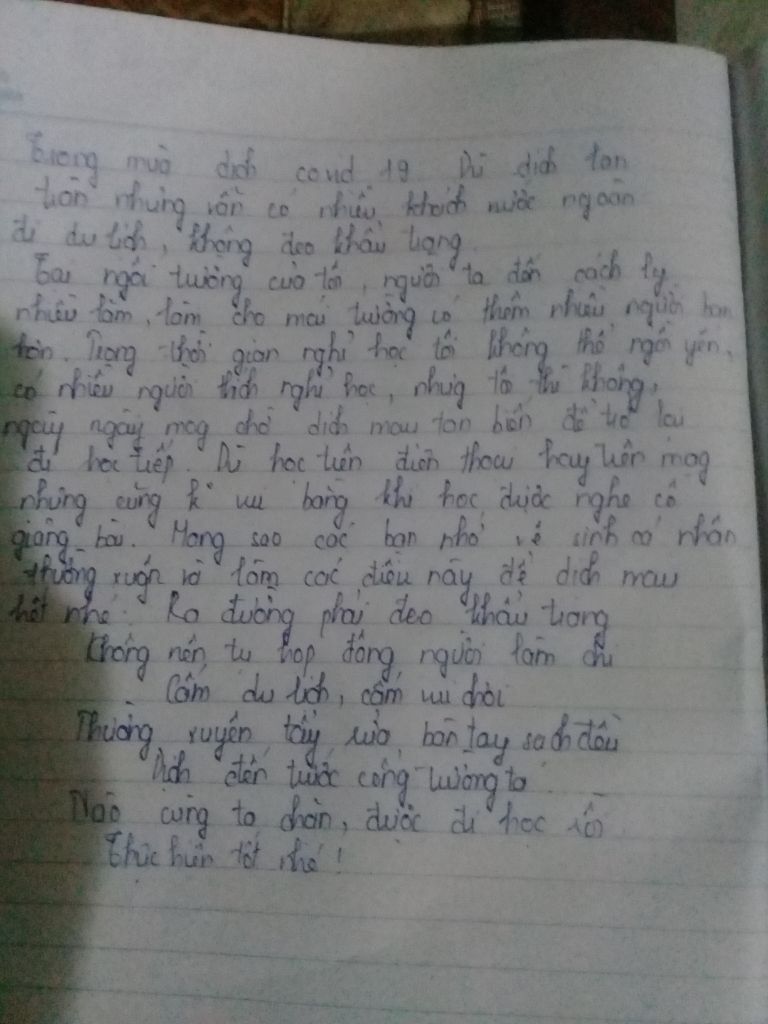 Trong mùa dịch covid 19. Dù dịch lan
tràn nhưng vẫn có nhiều khách nước ngoài
đi du lịch, không đeo khẩu trang.
Tại ngôi trường của tôi, người ta đến cách ly
nhiều lắm, làm cho mái trường có thêm nhiều người bạn
hơn. Trong thời gian nghỉ học tôi không thể ngồi yên,
có nhiều người thích nghỉ học, nhưng tôi thì không,
ngày ngày mog chờ dịch mau tan biến để trở lại
đi học tiếp. Dù học trên điện thoại hay trên mạg
nhưng cũng k vui bằng khi học được nghe cô
giảng bài. Mong sao các bạn nhớ vệ sinh cá nhân
thường xuyên và làm các điều này để dịch mau
hết nhé: Ra đường phải đeo khẩu trang
Không nên tụ họp đông người làm chi
Cấm du lịch, cấm vui chơi
Thường xuyên tẩy rửa bàn tay sạch đều
Dịch đến trước cổng trường ta
Nào cùng ta chặn, được đi học rồi
Thực hiện tốt nhé!